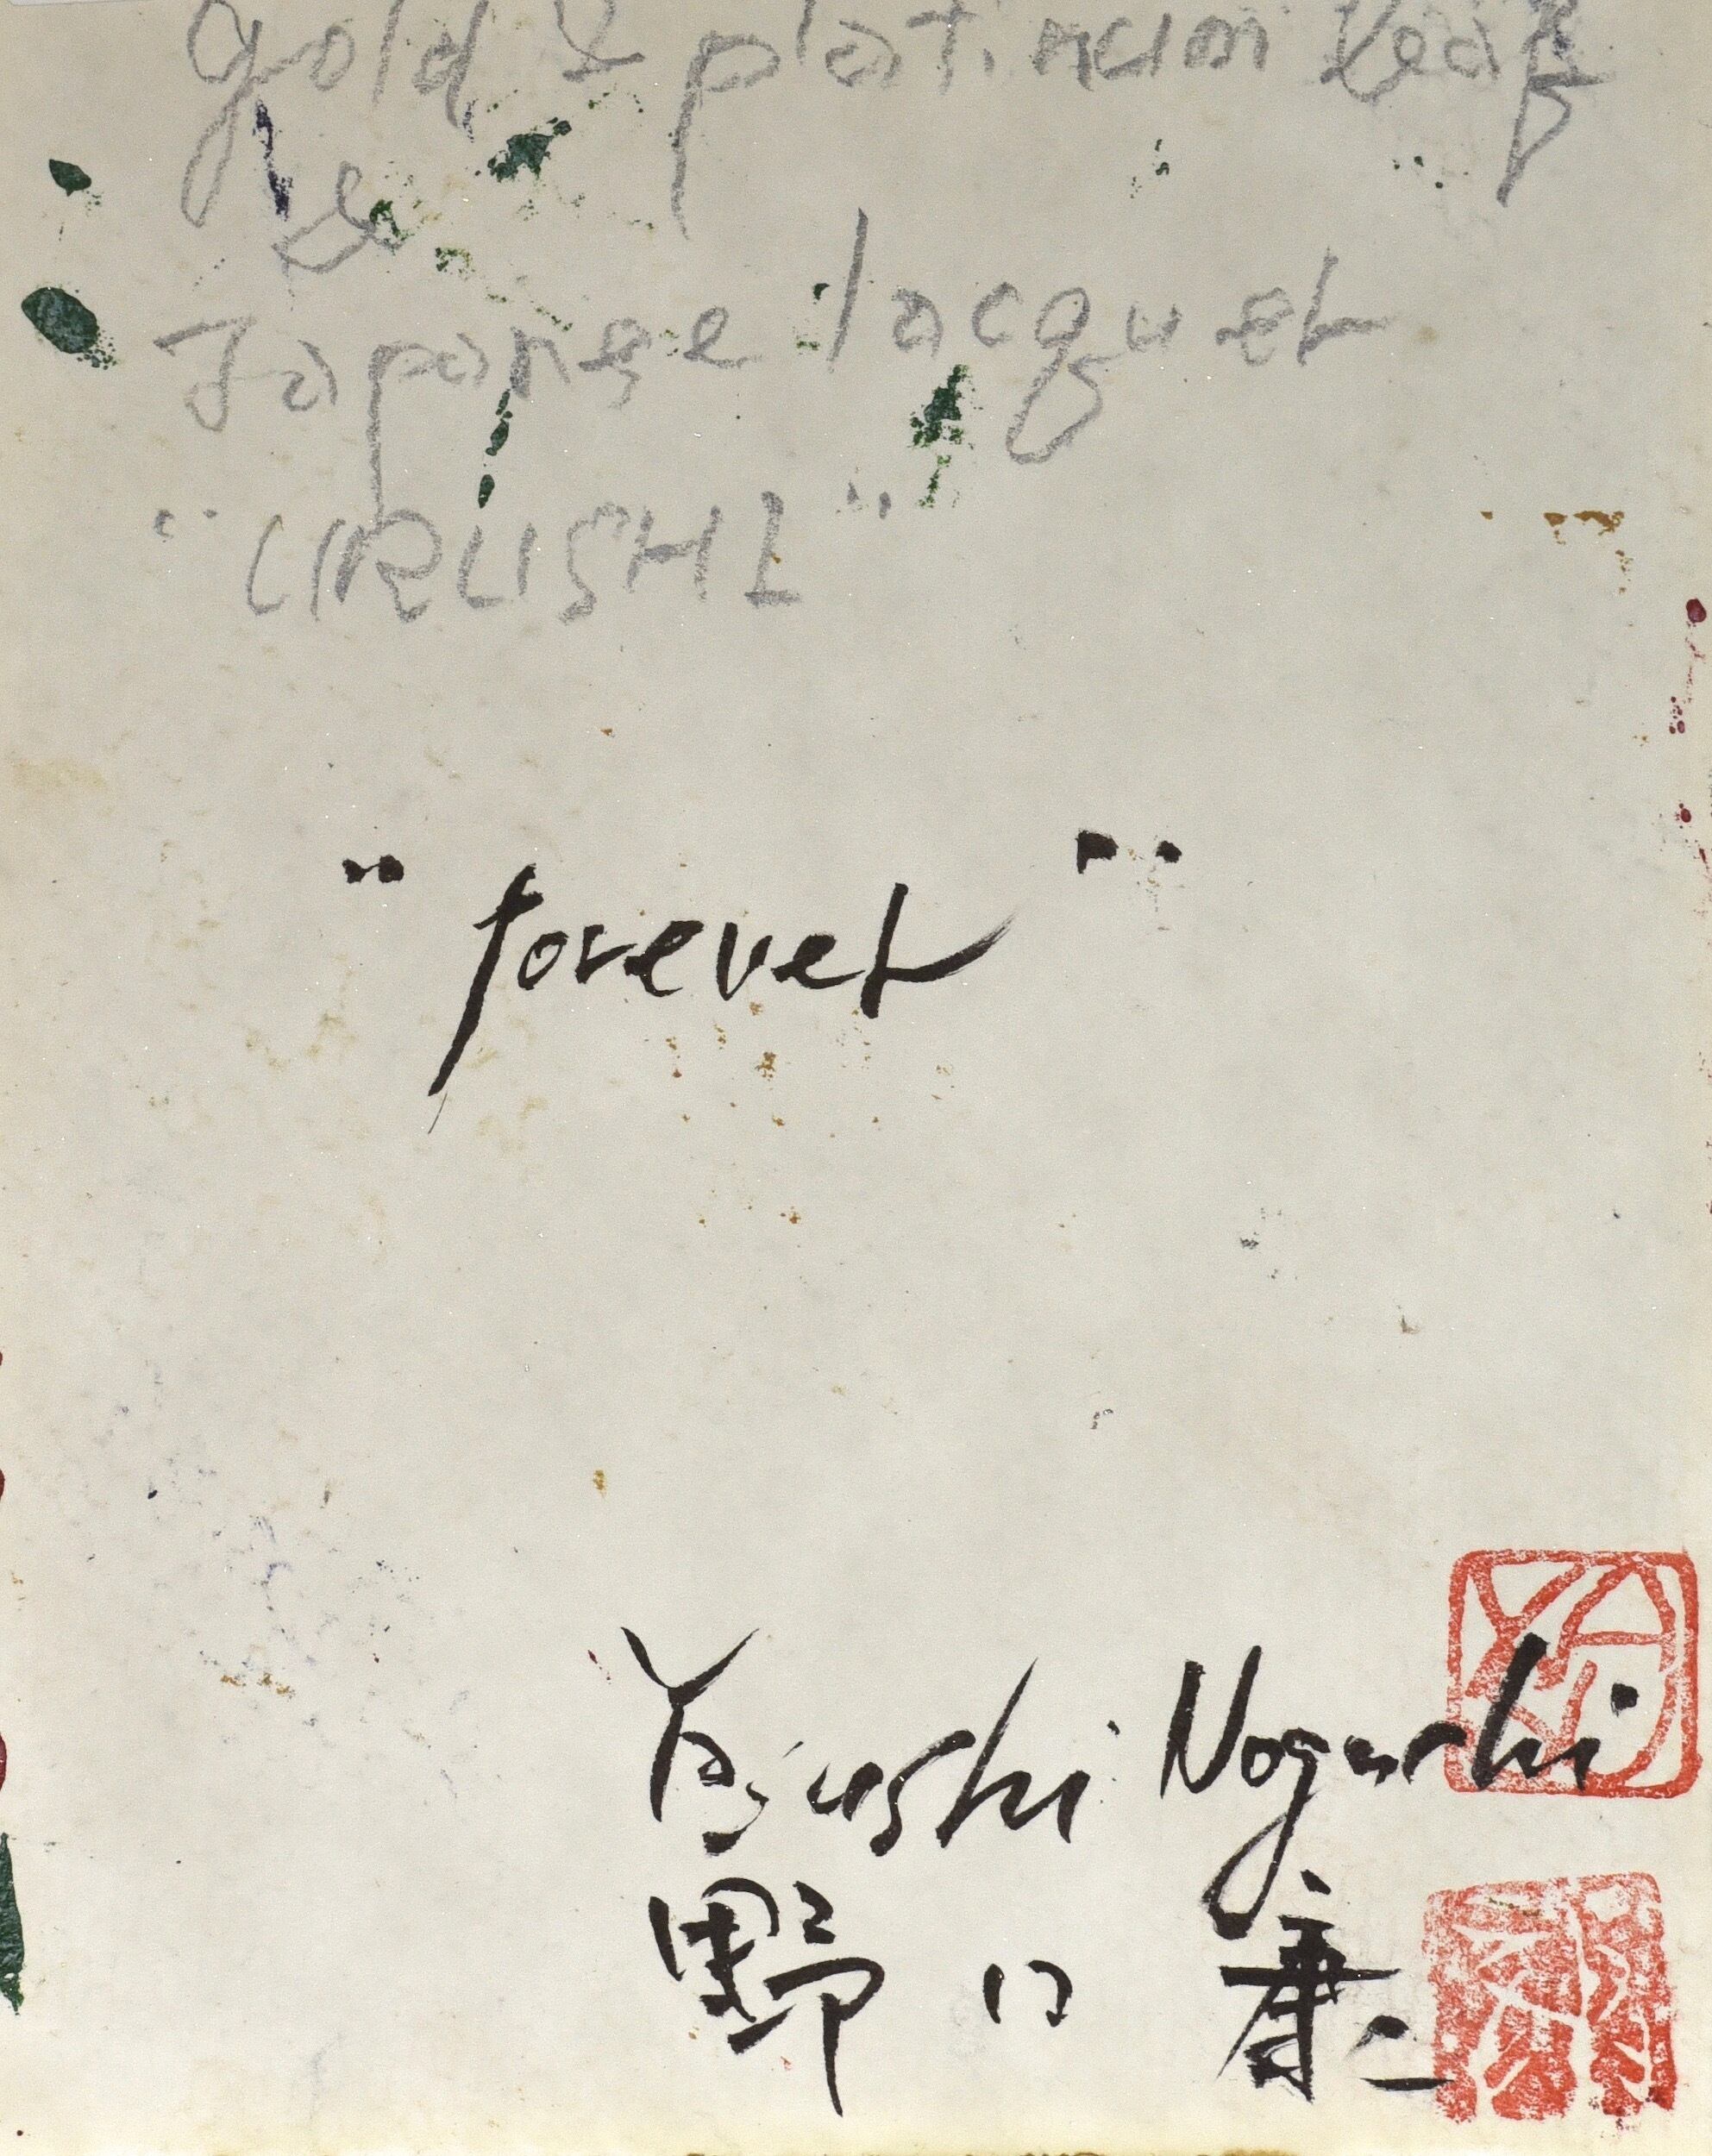 gold & platinum leaf
&
Japanese lacquer
"URUSHI"
"forever"
YA
SU
Yasushi Noguchi
野口 康